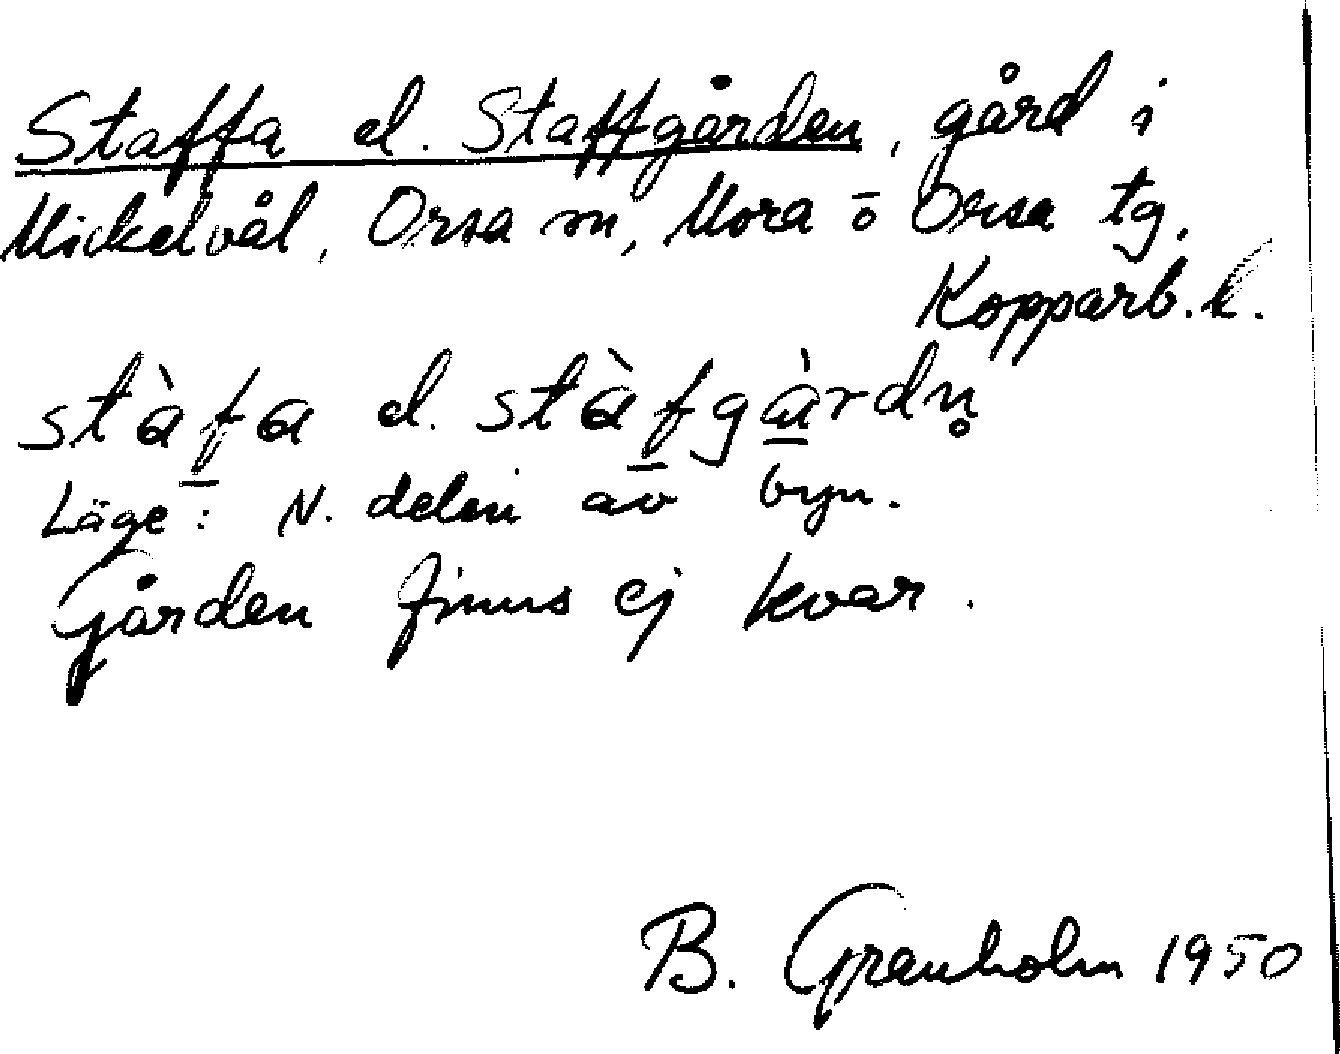 Staffa el. Staffgården, gård i
Mickelvål, Orsa sn, Mora o Orsa tg,
Kopparb. l.
stàfa el. stàfgàrdn̥
Läge: N. delen av byn.
Gården finns ej kvar.
B. Granholm 1950